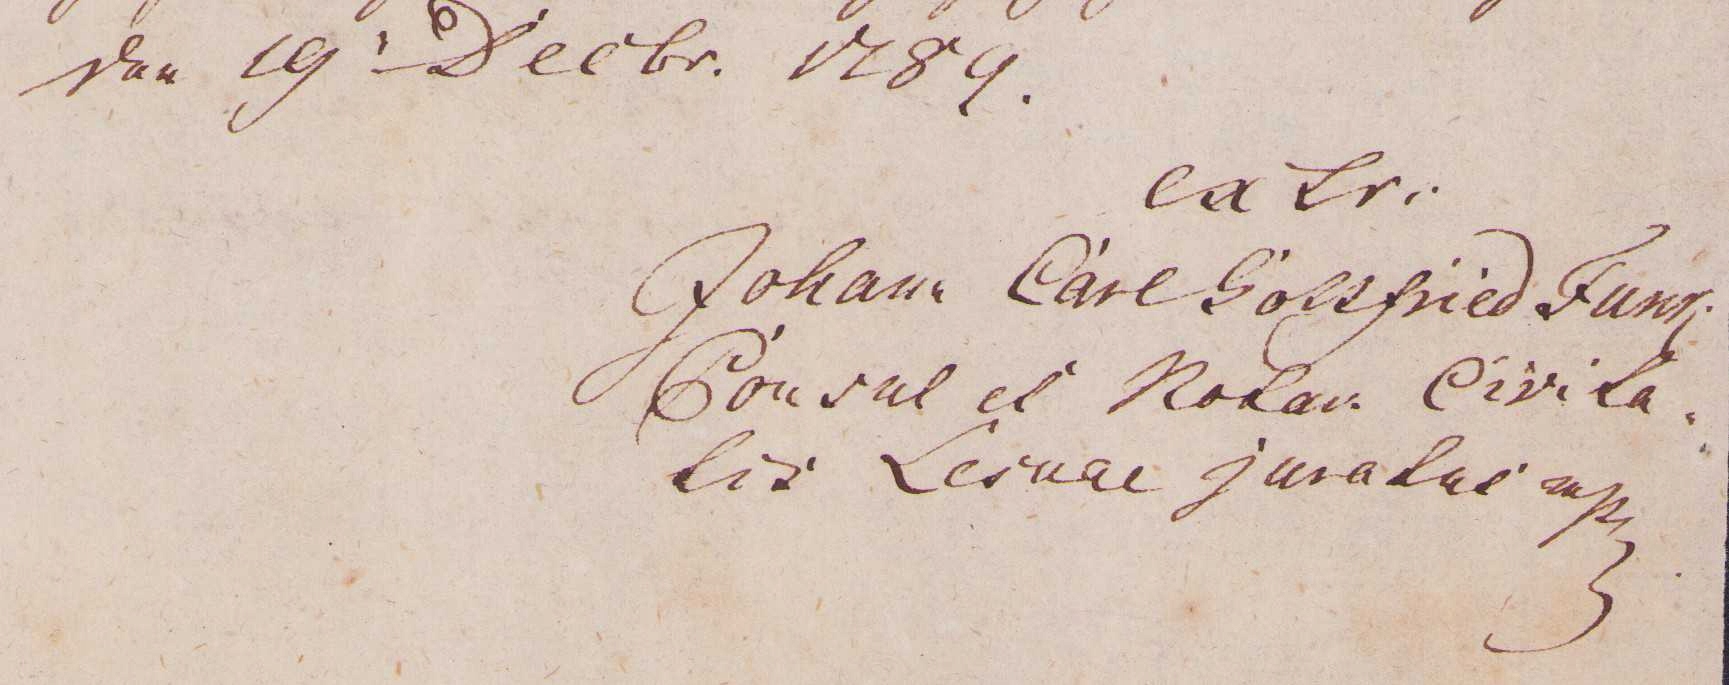 den 19t Decbr. 1789.
extr.
Johann Carl Gottfried Funk
Consul et Notar. Civita-
tis Lesnae juratus mp